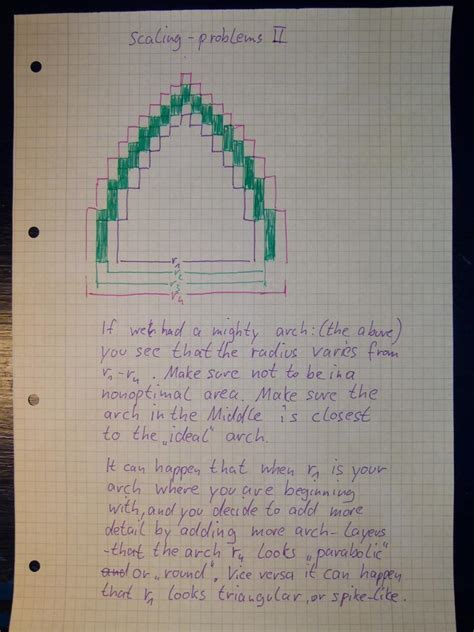 scaling-problems II
r1
r2
r3
r4
If we had a mighty arch: (the above)
you see that the radius varies from
r1-r4. Make sure not to be in a
nonoptimal area. Make sure the
arch in the Middle is closest
to the „ideal" arch.
It can happen that when r1 is your
arch where you are beginning
with, and you decide to add more
detail by adding more arch-Layers
-that the arch r4 looks „parabolic"
or „round". Vice versa it can happen
that r1 looks triangular, or spike-like.